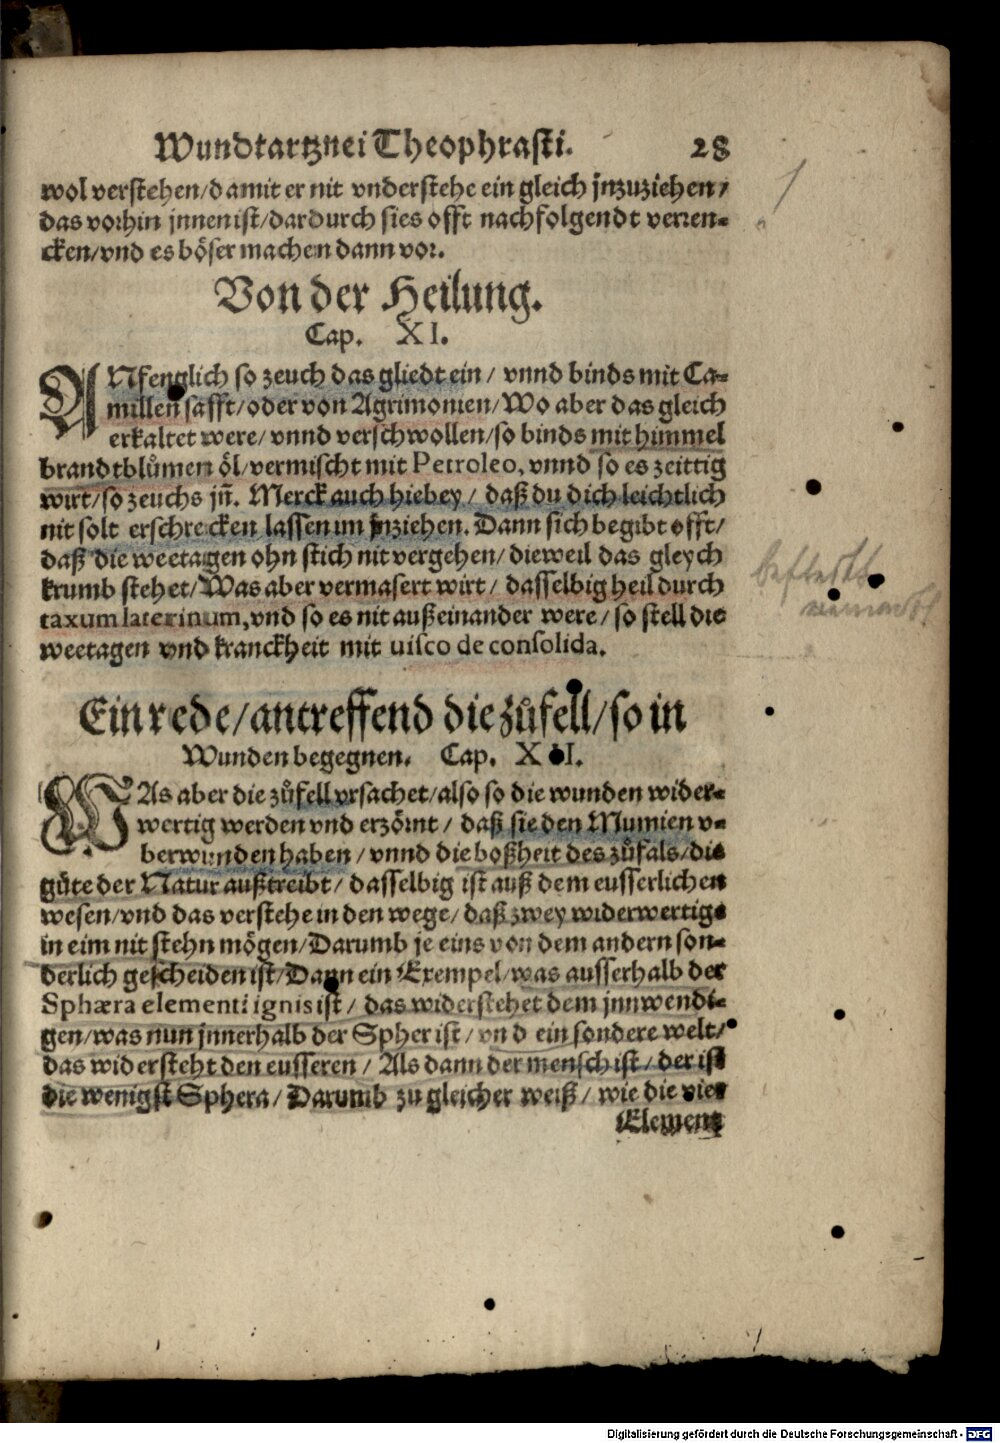 Wundtartznei Theophrasti. 28
wol verstehen/damit er nit vnderstehe ein gleich jnzuziehen/
das vorhin jnnen ist/dardurch sies offt nachfolgendt verren-
cken/vnd es böser machen dann vor.
Von der Heilung.
Cap. XI.
ANfenglich so zeuch das gliedt ein / vnnd binds mit Ca-
millen safft/oder von Agrimonien/Wo aber das gleich
erkaltet were/ vnnd verschwollen/so binds mit himmel
brandtblůmen öl/vermischt mit Petroleo, vnnd so es zeittig
wirt/so zeuchs jn̄. Merck auch hiebey / daß du dich leichtlich
nit solt erschrecken lassen im jnziehen. Dann sich begibt offt/
daß die weetagen ohn stich nit vergehen/dieweil das gleych
krumb stehet/Was aber vermasert wirt / dasselbig heil durch
taxum laterinum,vnd so es nit außeinander were/so stell die
weetagen vnd kranckheit mit uisco de consolida.
Ein rede/antreffend die zůfell/so in
Wunden begegnen. Cap. XII.
WAs aber die zůfell vrsachet/also so die wunden wider-
wertig werden vnd erzörnt / daß sie den Mumien v-
berwunden haben / vnnd die boßheit des zůfals/die
güte der Natur außtreibt/ dasselbig ist auß dem eusserlichen
wesen/vnd das verstehe in den wege/ daß zwey widerwertige
in eim nit stehn mögen/Darumb je eins von dem andern son-
derlich gescheiden ist/Dann ein Exempel/was ausserhalb der
Sphæra elementi ignis ist / das widerstehet dem jnnwendi-
gen/was nun jnnerhalb der Spher ist/ vnd ein sondere welt/
das widersteht den eusseren / Als dann der mensch ist/ der ist
die wenigst Sphera/ Darumb zu gleicher weiß/ wie die vier
Element
Digitalisierung gefördert durch die Deutsche Forschungsgemeinschaft - DFG